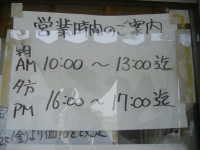 営業時間のご案内
朝
AM 10:00 〜 13:00 迄
夕方
PM 16:00 〜 17:00 迄
(金)より価格を改定